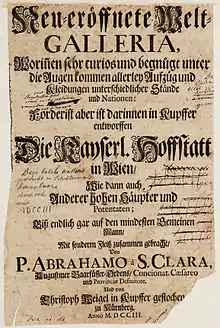 Neu-eröffnete Welt-
GALLERIA,
Worinnen sehr curios und begnügt unter
die Augen kommen allerley Aufzüg und
Kleidungen unterschiedlicher Stände
und Nationen:
Forderist aber ist darinnen in Kupffer
entworffen
Die Kayserl. Hoffstatt
in Wien/
Wie dann auch
Anderer hohen Häupter und
Potentaten;
Biß endlich gar auf den mindesten Gemeinen
Mann/
Mit sonderm Fleiß zusammen gebracht/
Von
P. ABRAHAMO à S. CLARA,
Augustiner Baarfüsser-Ordens/ Concionat. Cæsareo
und Provinciæ Definitore,
Und von
Christoph Weigel in Kupffer gestochen
zu Nürnberg.
ANNO MDCCIII.